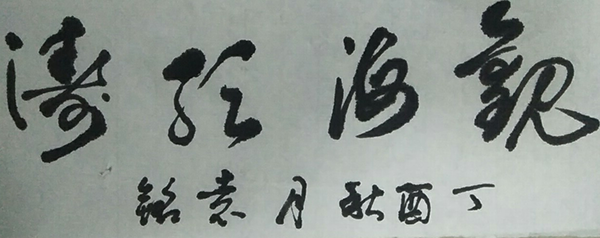 觀海聽濤
丁酉秋月袁銘